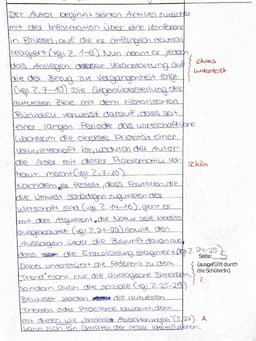 Der Autor beginnt seinen Artikel zunächst
mit der Information über eine Konferenz
in Brüssel, auf die er anfänglich neutral
reagiert (vgl. Z. 1-6). Nun nennt er jedoch
das Anliegen dieser Veranstaltung auf
die der Bezug zur Vergangenheit folgt
(vgl. Z. 7-10). Die Gegenüberstellung der
aktuellen Ziele mit dem historischen
Rückblick verweist darauf, dass seit
einer langen Periode das wirtschaftliche
Wachstum die oberste Priorität einer
Volkswirtschaft ist, wodurch der Autor
die Leser mit dieser Problematik ver-
traut macht (vgl. Z. 7-10).
Nachdem er festellt, dass Faktoren, die
die Umwelt schädigen zugunsten der
Wirtschaft sind (vgl. Z. 14-16), geht er
mit das Argument, die Natur sei bereits
ausgebeutet (vgl. Z. 21-23) sowie den
Aussagen über die Zukunft davon aus,
dass die Entwicklung stagniert (vgl. Z. 24-25)
Dabei unterstützt die Referenz zu dem
Trend nicht nur die ökologische Dimension
sondern auch die soziale (vgl. Z. 25-29)
Bewusst werden die aktuellen
Themen oder Probleme erwähnt, denn
(Z. 27)
kann sich ein Großteil der Leser identifizieren.
etwas
unterteilt
schön
Seite:
(ausgefüllt durch
die Schüler/in)
?
A